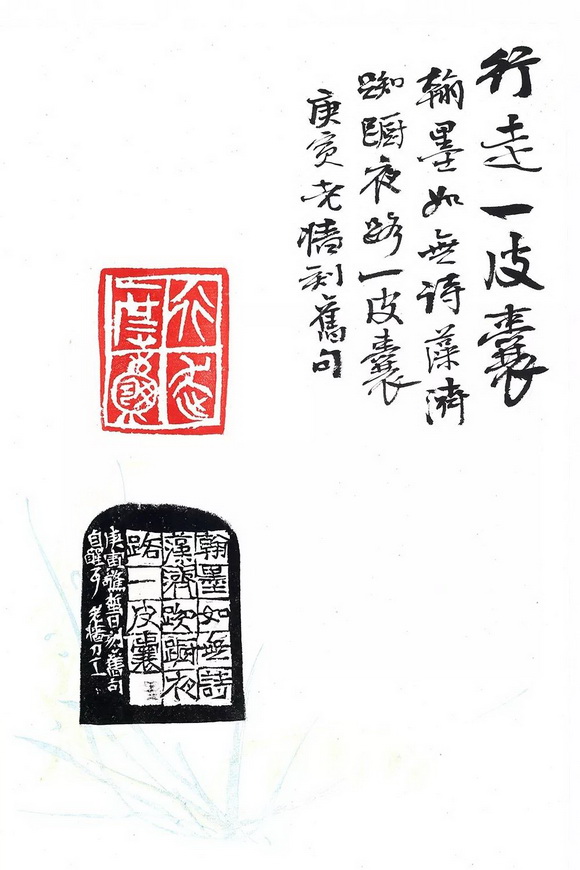 行走一皮囊
翰墨如無詩藻濟
踟躕夜路一皮囊
庚寅老墻刻舊句
行走一皮囊
翰墨如無詩
藻濟踟躕夜
路一皮囊
庚寅 日刻舊句
自醒耳 老墻刀工